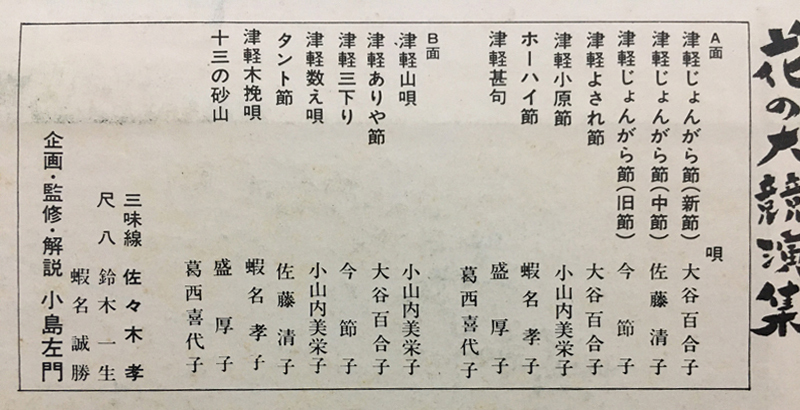 花の大競演集
A面
唄
津軽じょんがら節(新節) 大谷百合子
津軽じょんがら節(中節) 佐藤清子
津軽じょんがら節(旧節) 今節子
津軽よされ節 大谷百合子
津軽小原節 小山内美栄子
ホーハイ節 蝦名孝子
津軽甚句 盛厚子
葛西喜代子
B面
津軽山唄 小山内美栄子
津軽ありや節 大谷百合子
津軽三下り 今節子
津軽数え唄 小山内美栄子
タント節 佐藤清子
津軽木挽唄 蝦名孝子
十三の砂山 盛厚子
葛西喜代子
三味線 佐々木孝
尺八 鈴木一生
蝦名誠勝
企画・監修・解説 小島左門